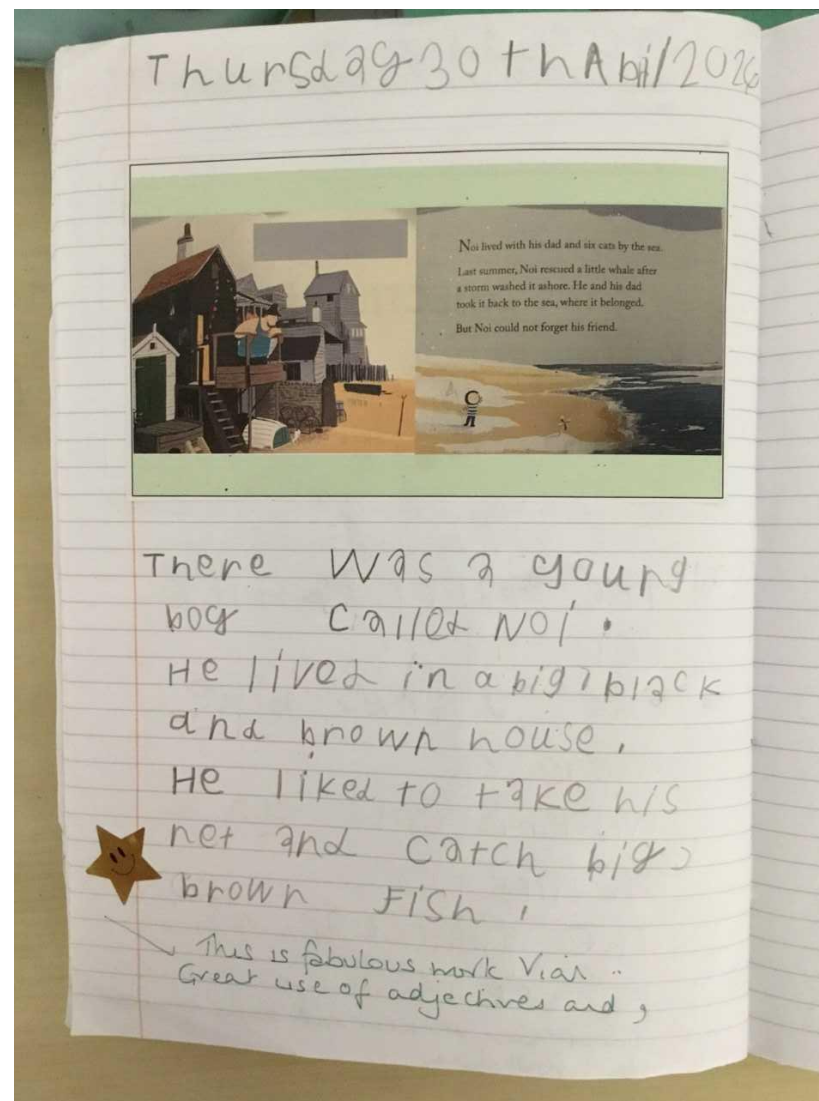 Thursday 30th April 2026
Noi lived with his dad and six cats by the sea.
Last summer, Noi rescued a little whale after
a storm washed it ashore. He and his dad
took it back to the sea, where it belonged.
But Noi could not forget his friend.
There was a young
boy called Noi.
He lived in a big, black
and brown house.
He liked to take his
net and catch big,
brown fish.
This is fabulous work
Great use of adjectives and ,